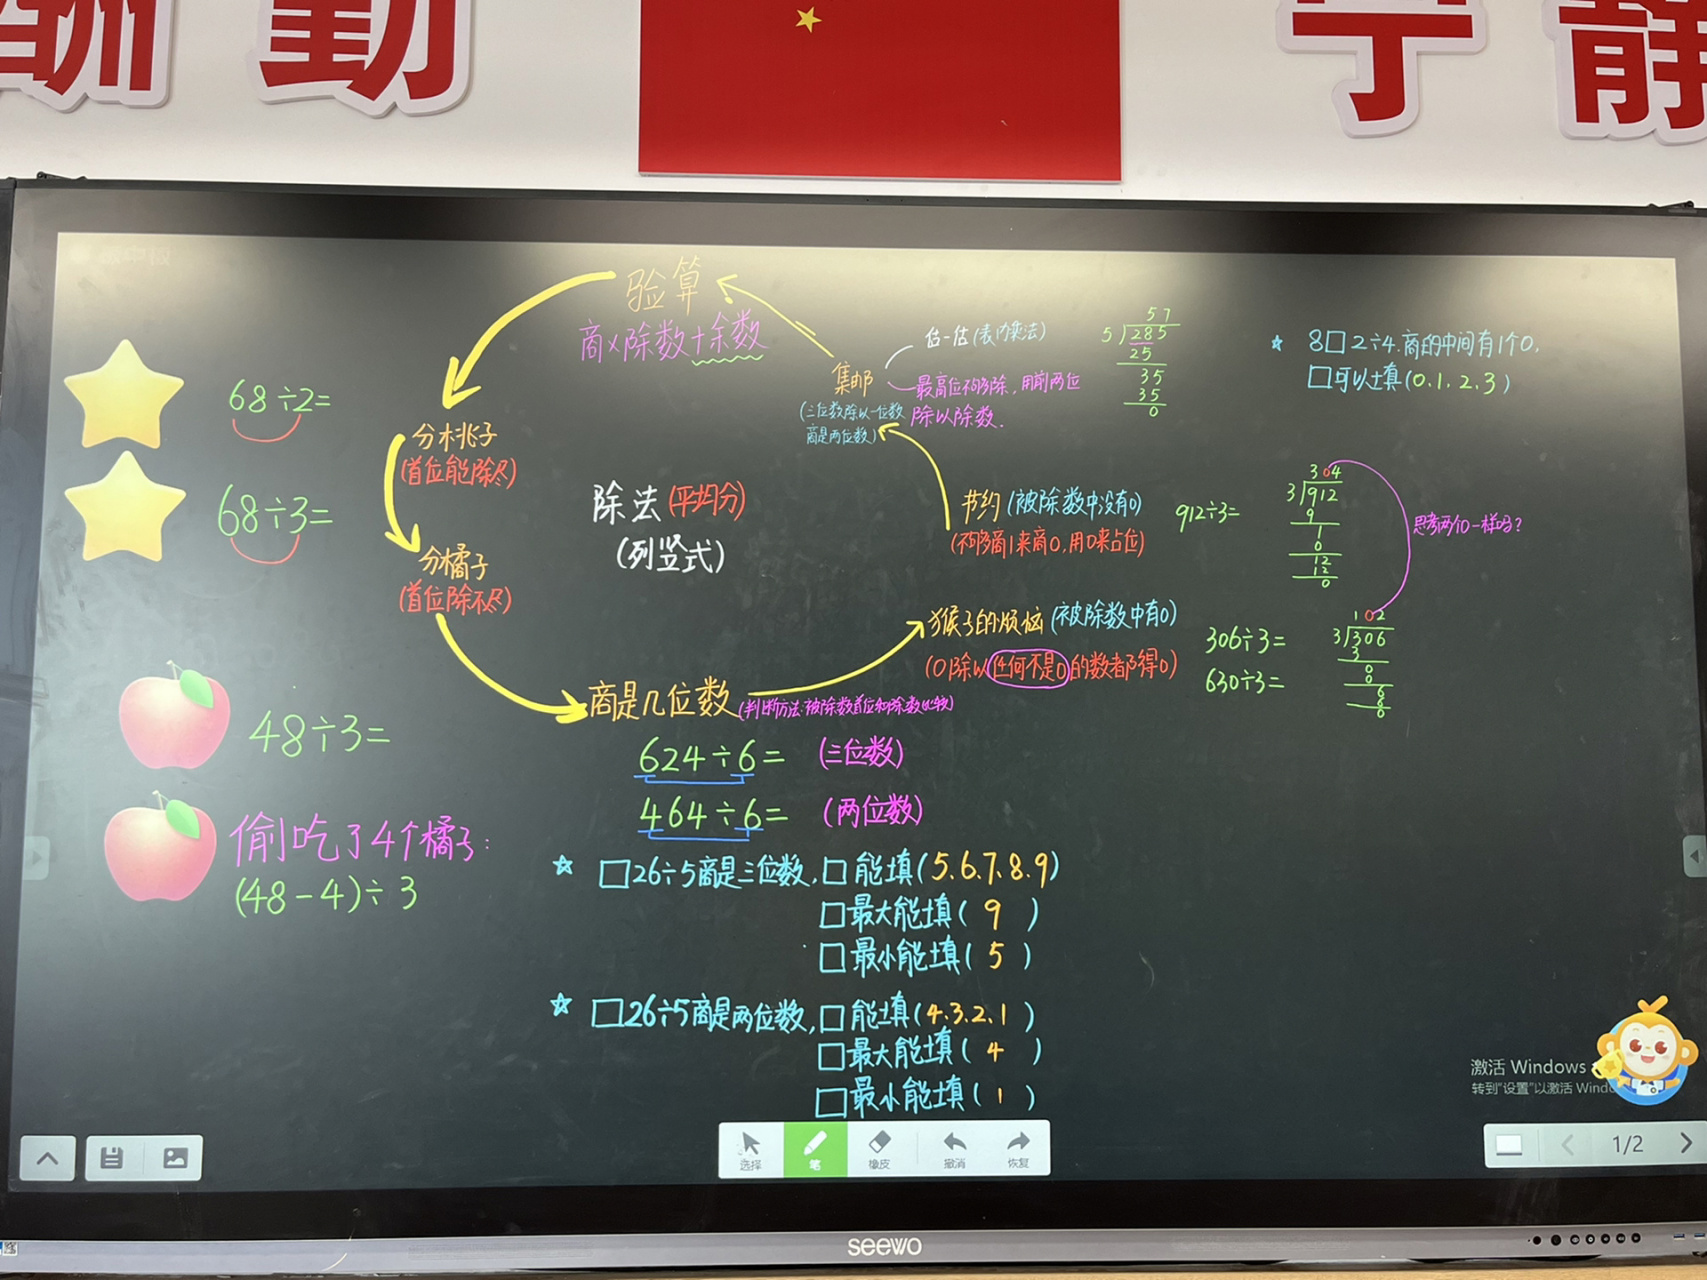 酬 勤 宁 静
验算
商×除数+余数
68÷2=
68÷3=
48÷3=
偷吃了4个橘子:
(48-4)÷3
分桃子
(首位能除尽)
分橘子
(首位除不尽)
除法(平均分)
(列竖式)
集邮
(三位数除以一位数
商是两位数)
估一估(表内乘法)
最高位不够除,用前两位
除以除数.
57
5 285
25
35
35
0
☆ 8□2÷4.商的中间有1个0,
□可以填(0.1.2.3)
节约(被除数中没有0)
(不够商1来商0,用0来占位)
912÷3=
304
3 912
9
1
0
12
12
0
思考两个0一样吗?
猴子的烦恼(被除数中有0)
(0除以任何不是0的数都得0)
306÷3=
630÷3=
102
3 306
3
0
0
6
6
0
商是几位数(判断方法:被除数首位和除数比较)
624÷6= (三位数)
464÷6= (两位数)
☆ □26÷5商是三位数,□能填(5.6.7.8.9)
□最大能填(9)
□最小能填(5)
☆ □26÷5商是两位数,□能填(4.3.2.1)
□最大能填(4)
□最小能填(1)
激活 Windows
转到"设置"以激活 Wind
选择 笔 橡皮 撤消 恢复
1/2
seewo